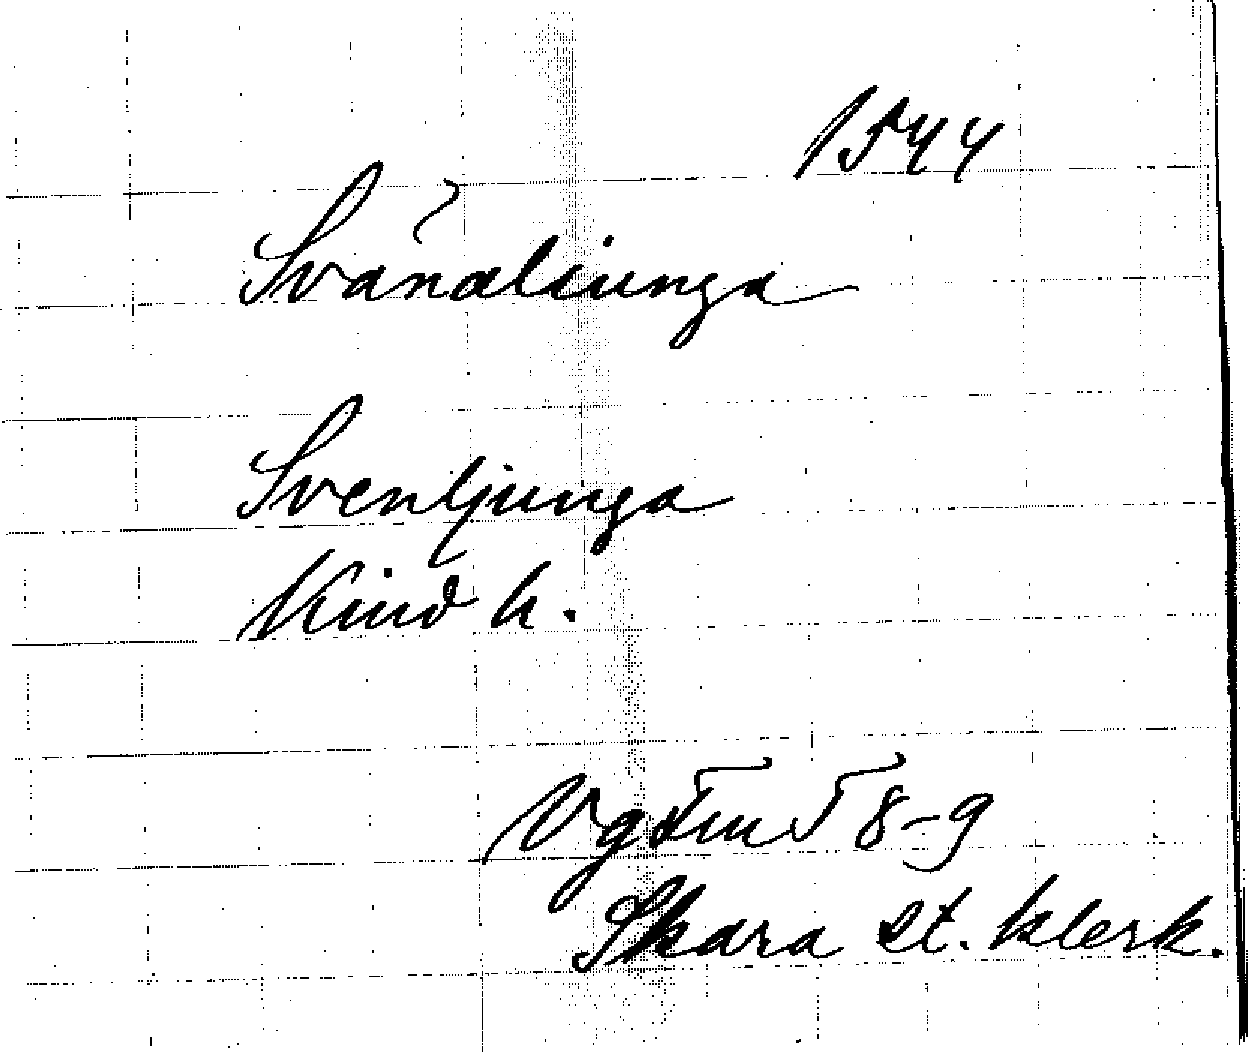 1544
Svanaliunga
Svenljunga
Kind h.
VgFmT 8-9
Skara st. klerk.